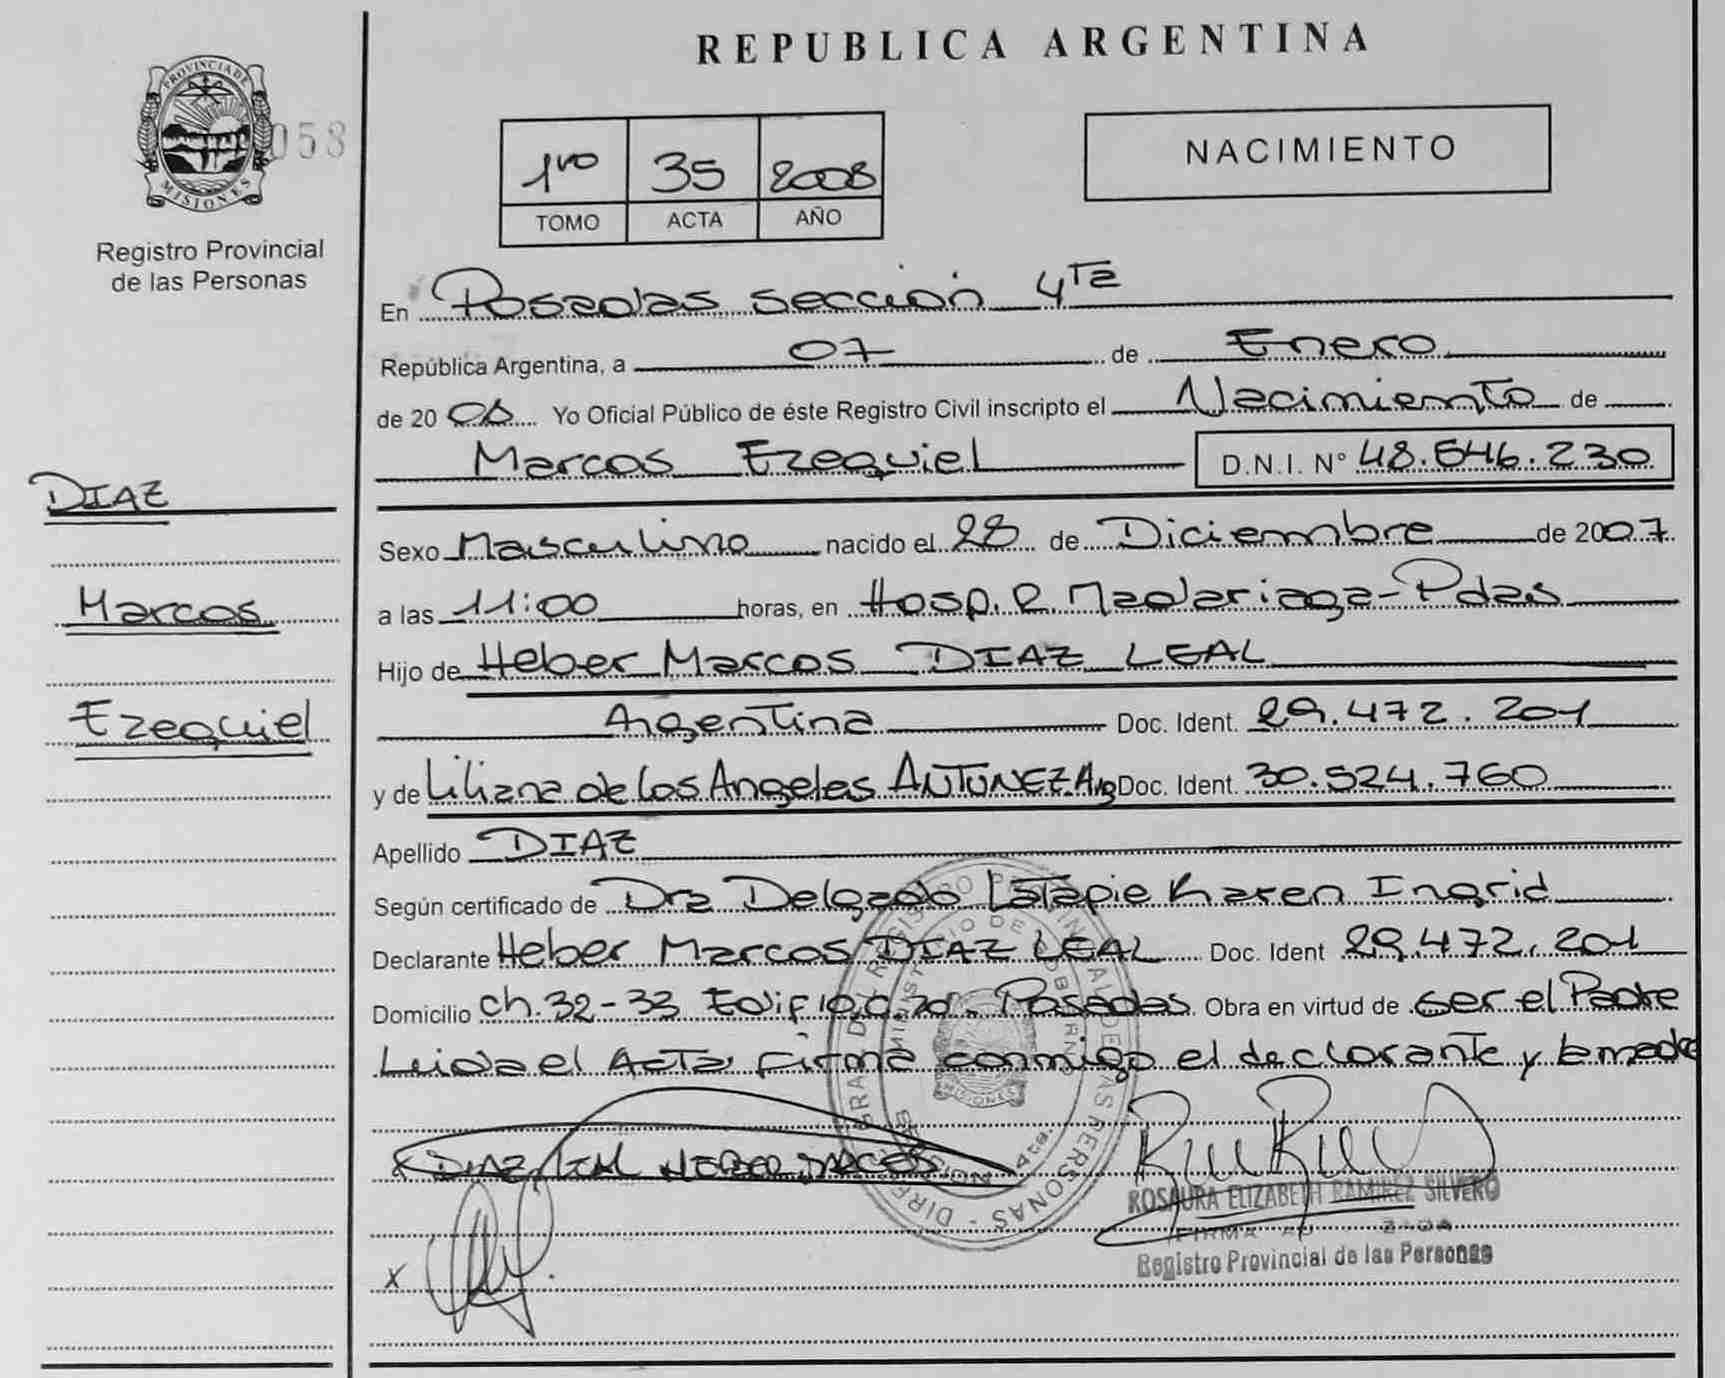 REPUBLICA ARGENTINA
PROVINCIA DE
MISIONES
058
Registro Provincial
de las Personas
1ro 35 2008
TOMO ACTA AÑO
NACIMIENTO
En Posadas sección 4Ta
República Argentina, a 07 de Enero
de 20 08 Yo Oficial Público de éste Registro Civil inscripto el Nacimiento de
Marcos Ezequiel D.N.I. N° 48.546.230
DIAZ
Marcos
Ezequiel
Sexo Masculino nacido el 28 de Diciembre de 2007
a las 11:00 horas, en Hosp. R. Madariaga-Pdas
Hijo de Heber Marcos DIAZ LEAL
Argentina Doc. Ident. 29.472.201
y de Liliana de los Angeles ANTUNEZ.Arg Doc. Ident. 30.524.760
Apellido DIAZ
Según certificado de Dra Delgado Latapie Karen Ingrid
Declarante Heber Marcos DIAZ LEAL Doc. Ident 29.472.201
Domicilio ch.32-33 Edif 10, Posadas. Obra en virtud de ser el Padre
Leida el Acta firma conmigo el declarante y la madre
x DIAZ LEAL HEBER MARCOS
ROSAURA ELIZABETH RAMIREZ SILVERO
FIRMA
Registro Provincial de las Personas
x
MINISTERIO DE GOBIERNO
MISIONES
4ta.